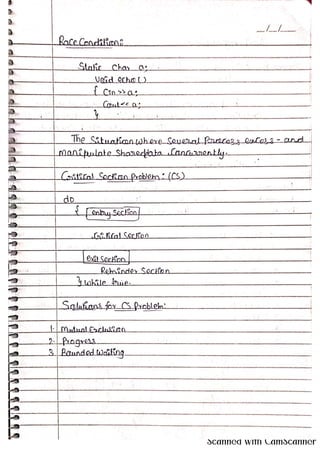 __/__/__
Race Condition:
Static char a;
Void echo()
{ Cin >> a;
Cout << a;
}
The Situation where Several Process access - and
manipulate Shared data Concurrently.
Critical Section Problem: (CS)
do
{ entry Section
Critical Section
exit Section
Reminder Section
} while true.
Solutions for CS Problem:
1. Mutual Exclusion
2. Progress
3. Bounded Waiting
Scanned with CamScanner